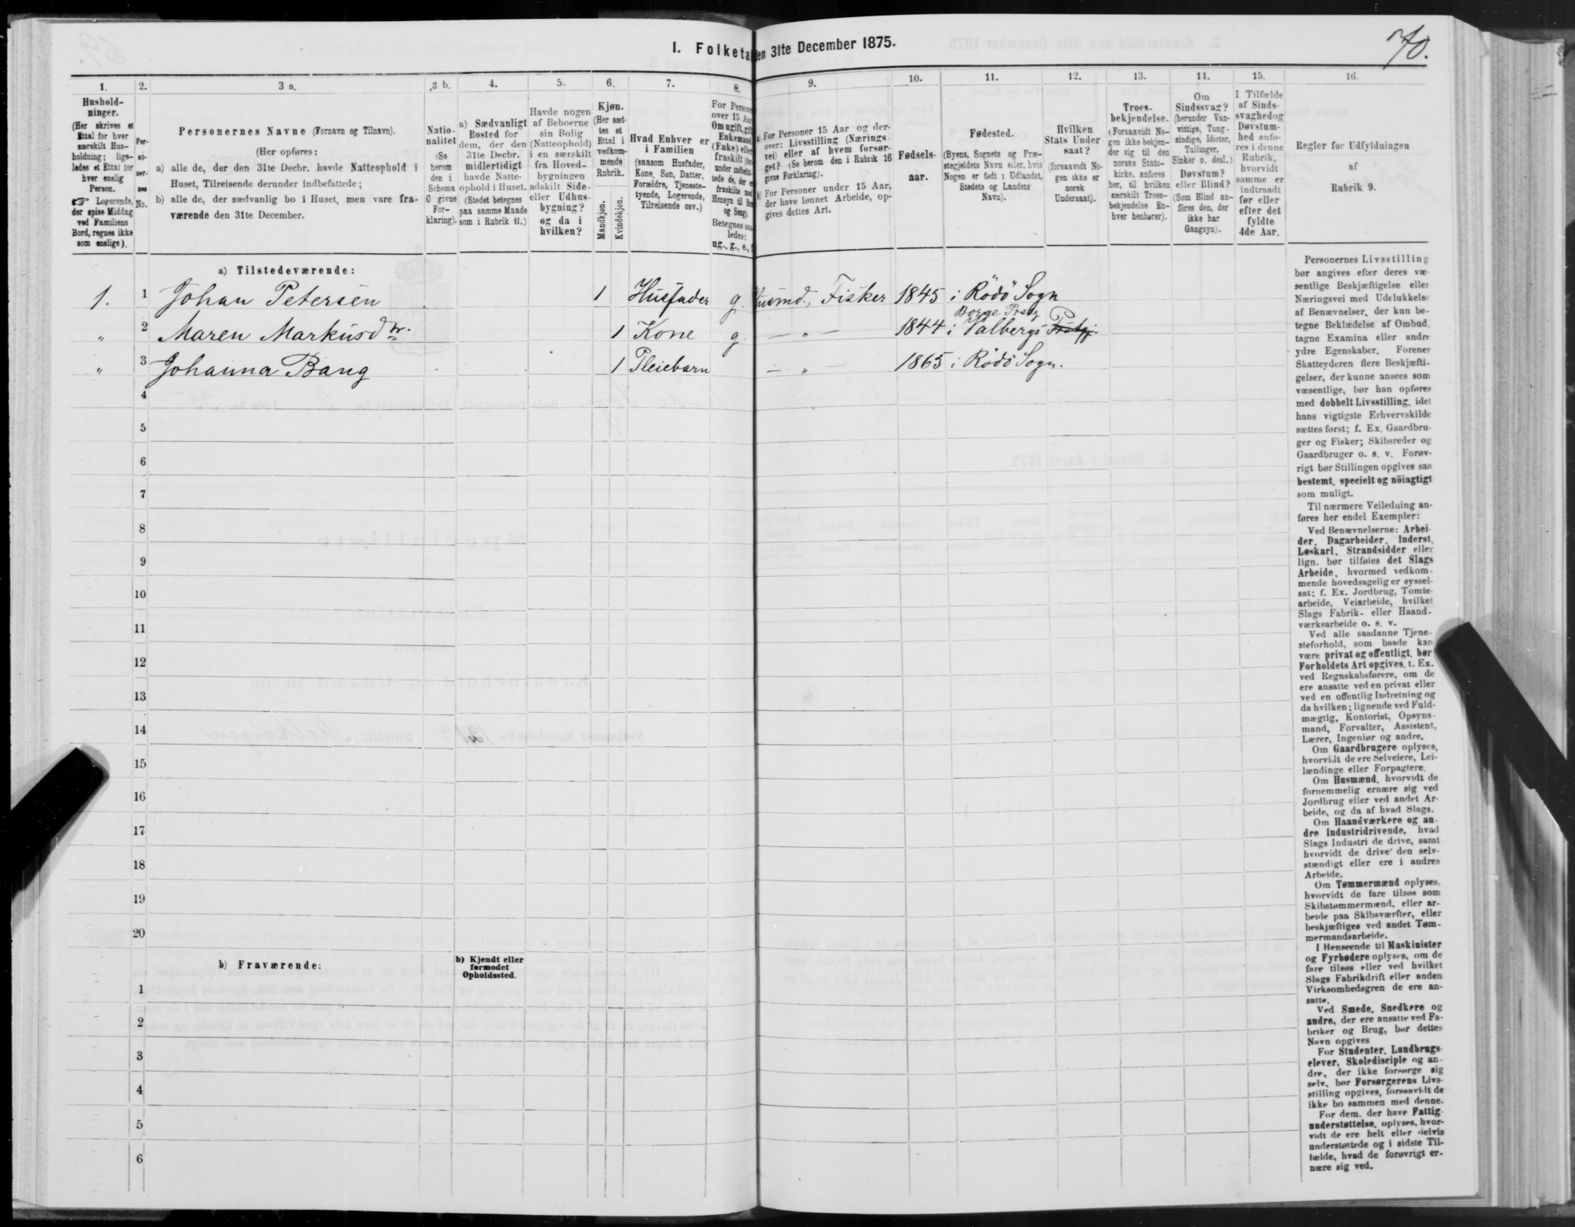 70.
I. Folketa
den 31te December 1875.
1. 2. 3 a. 3 b. 4. 5. 6. 7. 8. 9. 10. 11. 12. 13. 11. 15. 16.
Hushold-
ninger.
(Her skrives et
Ettal for hver
særskilt Hus-
holdning; lige-
ledes et Ettal for
hver enslig
Person.
☞ Logerende,
der spise Middag
ved Familiens
Bord, regnes ikke
som enslige).
Per-
so-
ner-
nes
No.
Personernes Navne (Fornavn og Tilnavn).
(Her opføres:
a) alle de, der den 31te Decbr. havde Natteophold i
Huset, Tilreisende derunder indbefattede;
b) alle de, der sædvanlig bo i Huset, men vare fra-
værende den 31te December.
Natio-
nalitet
(Se
herom
den i
Schema
O givne
For-
klaring).
a) Sædvanligt
Bosted for
dem, der den
31te Decbr.
midlertidigt
havde Natte-
ophold i Huset.
(Stedet betegnes
paa samme Maade
som i Rubrik 11.)
Havde nogen
af Beboerne
sin Bolig
(Natteophold)
i en særskilt
fra Hoved-
bygningen
adskilt Side-
eller Udhus-
bygning?
og da i
hvilken?
Kjøn.
(Her sæt-
tes et
Ettal i
vedkom-
mende
Rubrik.
Mandkjøn.
Kvindekjøn.
Hvad Enhver er
i Familien
(saasom Husfader,
Kone, Søn, Datter,
Forældre, Tjeneste-
tyende, Logerende,
Tilreisende osv.)
For Persone
over 15 Aa
Om ugift, gift
Enkemand
(Fake) eller
fraskilt
Betegnes saa
ledes:
ug., g., e.,
For Personer 15 Aar og der-
over: Livsstilling (Nærings-
vei) eller af hvem forsør-
get? (Se herom den i Rubrik 16
givne Forklaring).
b) For Personer under 15 Aar,
der have lønnet Arbeide, op-
gives dettes Art.
Fødsels-
aar.
Fødested.
(Byens, Sognets og Præ-
stegjeldets Navn eller, hvis
Nogen er født i Udlandet,
Stedets og Landets
Navn).
Hvilken
Stats Under
saat?
(forsaavidt No-
gen ikke er
norsk
Undersaat).
Troes-
bekjendelse.
(Forsaavidt No-
gen ikke bekjen-
der sig til den
norske Stats-
kirke, anføres
her, til hvilken
særskilt Troes-
bekjendelse En-
hver henhører).
Om
Sindssvag?
(herunder Van-
vittige, Tung-
sindige, Idioter,
Tullinger,
Sinker o. desl.)
Døvstum?
eller Blind?
(Som Blind an-
føres den, der
ikke har
Gangsyn).
I Tilfælde
af Sinds-
svaghed og
Døvstum-
hed anfø-
res i denne
Rubrik,
hvorvidt
samme er
indtraadt
før eller
efter det
fyldte
4de Aar.
Regler for Udfyldningen
af
Rubrik 9.
a) Tilstedeværende:
1. 1 Johan Petersen 1 Husfader g. Husmd., Fisker 1845 i Rödö Sogn
Borge Prstg
" 2 Maren Markusdtr. 1 Kone g. — " — 1844 i Valbergs Prstgj
" 3 Johanna Bang 1 Pleiebarn — " — 1865 i Rödö Sogn.
4
5
6
7
8
9
10
11
12
13
14
15
16
17
18
19
20
b) Fraværende:
b) Kjendt eller
formodet
Opholdssted.
1
2
3
4
5
6
Personernes Livsstilling
bør angives efter deres væ-
sentlige Beskjæftigelse eller
Næringsvei med Udelukkelse
af Benævnelser, der kun be-
tegne Beklædelse af Ombud,
tagne Examina eller andre
ydre Egenskaber. Forener
Skatteyderen flere Beskjæfti-
gelser, der kunne ansees som
væsentlige, bør han opføres
med dobbelt Livsstilling, idet
hans vigtigste Erhvervskilde
sættes først; f. Ex. Gaardbru-
ger og Fisker; Skibsreder og
Gaardbruger o. s. v. Forøv-
rigt bør Stillingen opgives saa
bestemt, specielt og nöiagtigt
som muligt.
Til nærmere Veiledning an-
føres her endel Exempler:
Ved Benævnelserne: Arbei-
der, Dagarbeider, Inderst,
Løskarl, Strandsidder eller
lign. bør tilføies det Slags
Arbeide, hvormed vedkom-
mende hovedsagelig er syssel-
sat; f. Ex. Jordbrug, Tomte-
arbeide, Veiarbeide, hvilket
Slags Fabrik- eller Haand-
værksarbeide o. s. v.
Ved alle saadanne Tjene-
steforhold, som baade kan
være privat og offentligt, bør
Forholdets Art opgives, t. Ex.
ved Regnskabsførere, om de
ere ansatte ved en privat eller
ved en offentlig Indretning og
da hvilken; lignende ved Fuld-
mægtig, Kontorist, Opsyns-
mand, Forvalter, Assistent,
Lærer, Ingeniør og andre.
Om Gaardbrugere oplyses,
hvorvidt de ere Selveiere, Lei-
lændinge eller Forpagtere.
Om Husmænd, hvorvidt de
fornemmelig ernære sig ved
Jordbrug eller ved andet Ar-
beide, og da af hvad Slags.
Om Haandværkere og an-
dre Industridrivende, hvad
Slags Industri de drive, samt
hvorvidt de drive den selv-
stændigt eller ere i andres
Arbeide.
Om Tømmermænd oplyses,
hvorvidt de fare tilsøs som
Skibstømmermænd, eller ar-
beide paa Skibsværfter, eller
beskjæftiges ved andet Tøm-
mermandsarbeide.
I Henseende til Maskinister
og Fyrbødere oplyses, om de
fare tilsøs eller ved hvilket
Slags Fabrikdrift eller anden
Virksomhedsgren de ere an-
satte.
Ved Smede, Snedkere og
andre, der ere ansatte ved Fa-
briker og Brug, bør dettes
Navn opgives
For Studenter, Landbrugs-
elever, Skoledisciple og an-
dre, der ikke forsørge sig
selv, bør Forsørgerens Livs-
stilling opgives, forsaavidt de
ikke bo sammen med denne.
For dem, der have Fattig-
understøttelse, oplyses, hvor-
vidt de ere helt eller delvis
understøttede og i sidste Til-
fælde, hvad de forøvrigt er-
nære sig ved.